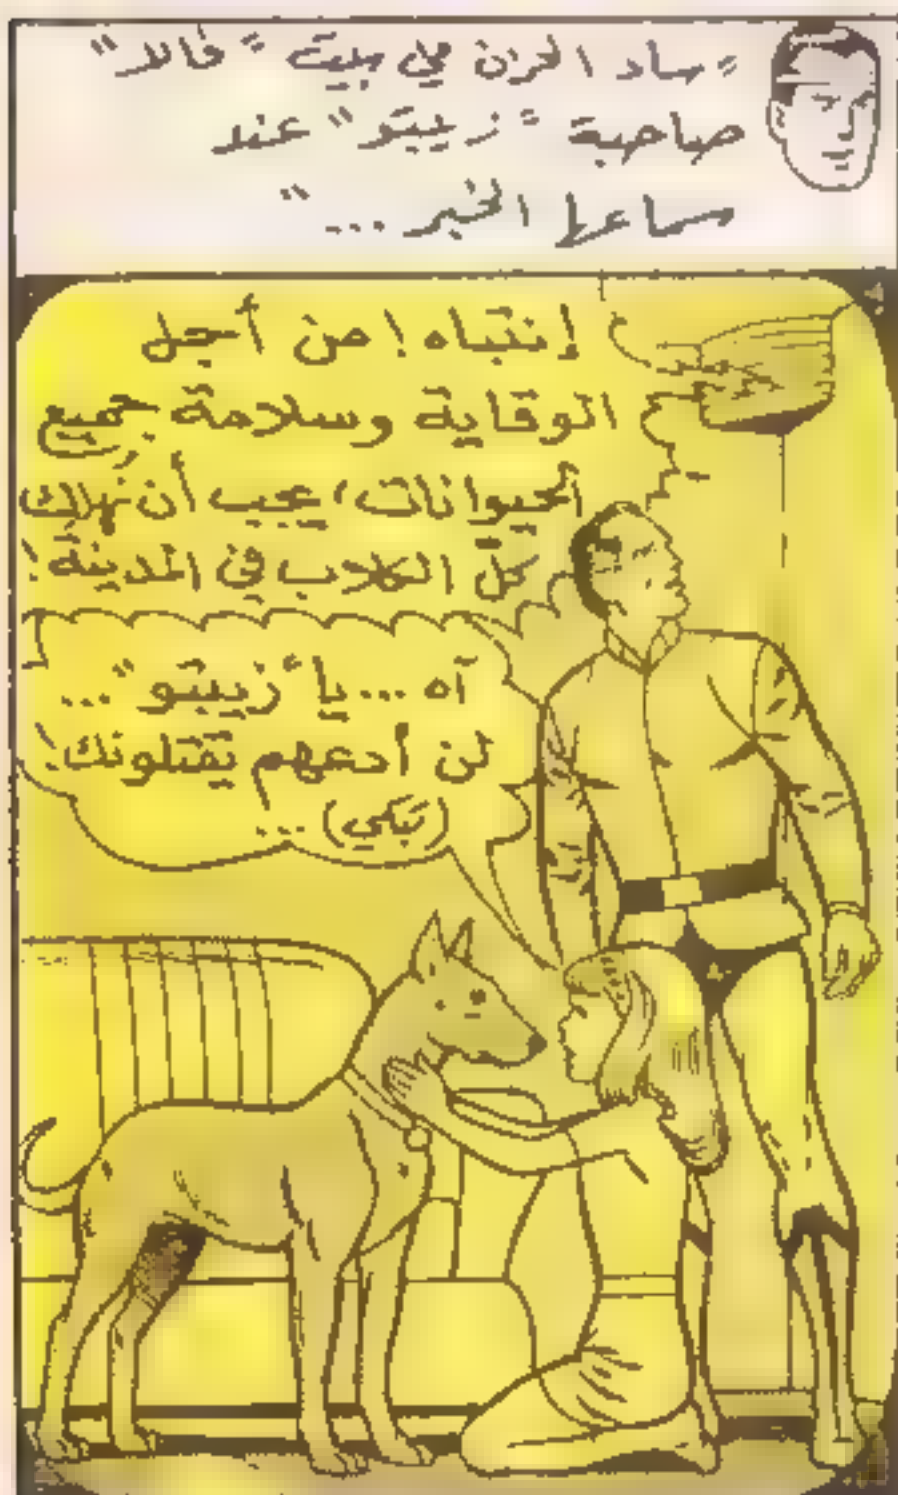 "ساد الحزن في بيت "فالا"
صاحبة "زيبتو" عند
سماعها الخبر ..."
إنتباه ! من أجل
الوقاية وسلامة جميع
الحيوانات، يجب أن نهلك
كل الكلاب في المدينة !
آه ... يا "زيبتو" ...
لن أدعهم يقتلونك !
(تبكي) ...